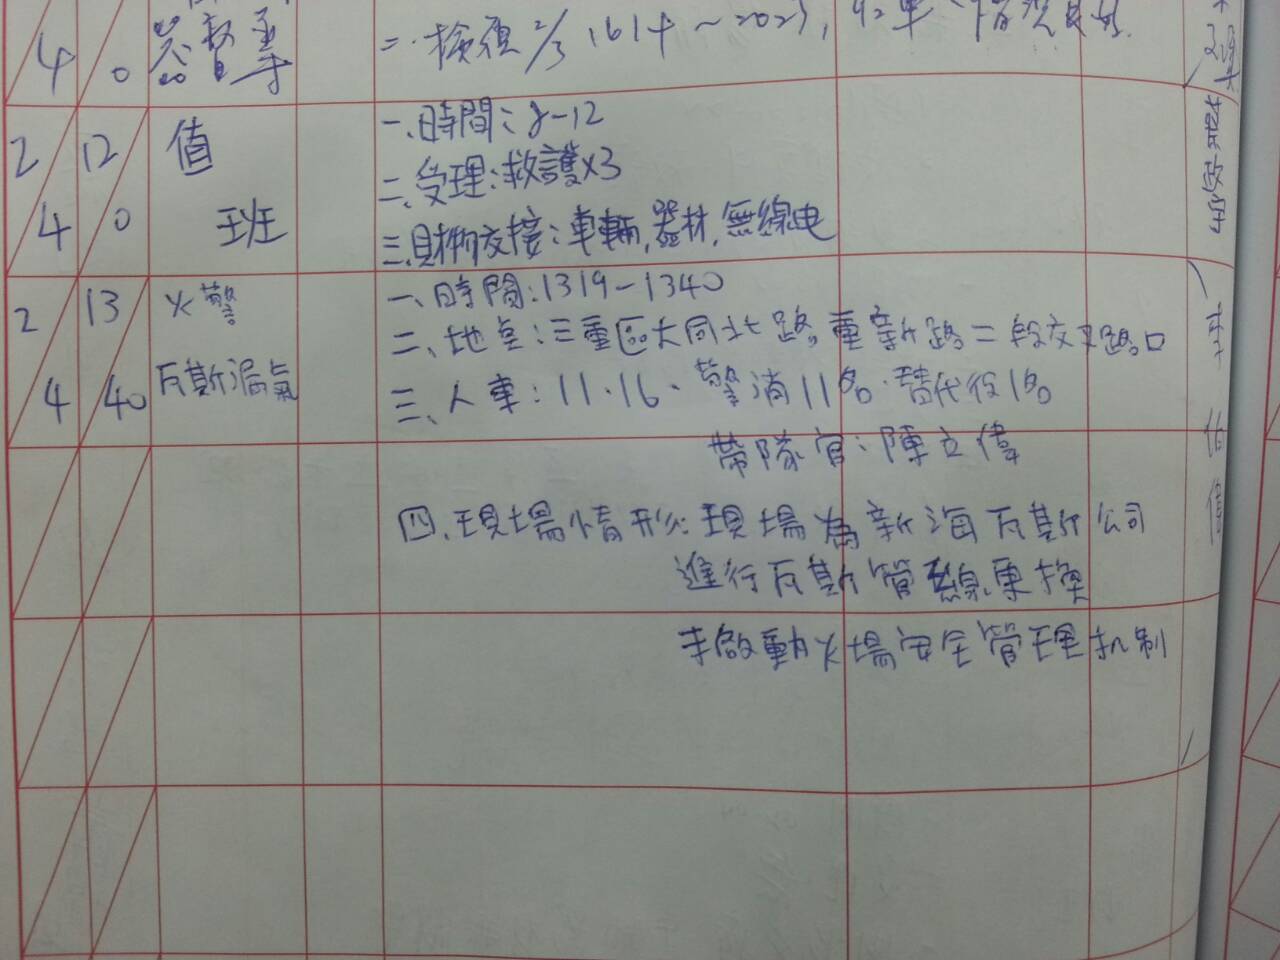 4 0
二.檢視2/3 1614~2023,
2 12 值
4 0 班
一、時間:8-12
二、受理:救護x3
三.財物交接:車輛,器材,無線电
2 13 火警
4 40 瓦斯漏氣
一、時間:1319-1340
二、地点:三重區大同北路,重新路二段交叉路口
三、人車:11.16、警消11名.替代役1名
帶隊官:陳立偉
四.現場情形:現場為新海瓦斯公司
進行瓦斯管線更換
未啟動火場安全管理机制